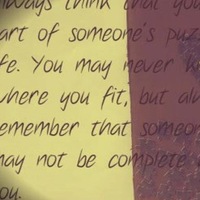 always think that you
art of someone's puz
fe. You may never k
where you fit, but alw
emember that someon
may not be complete
you.